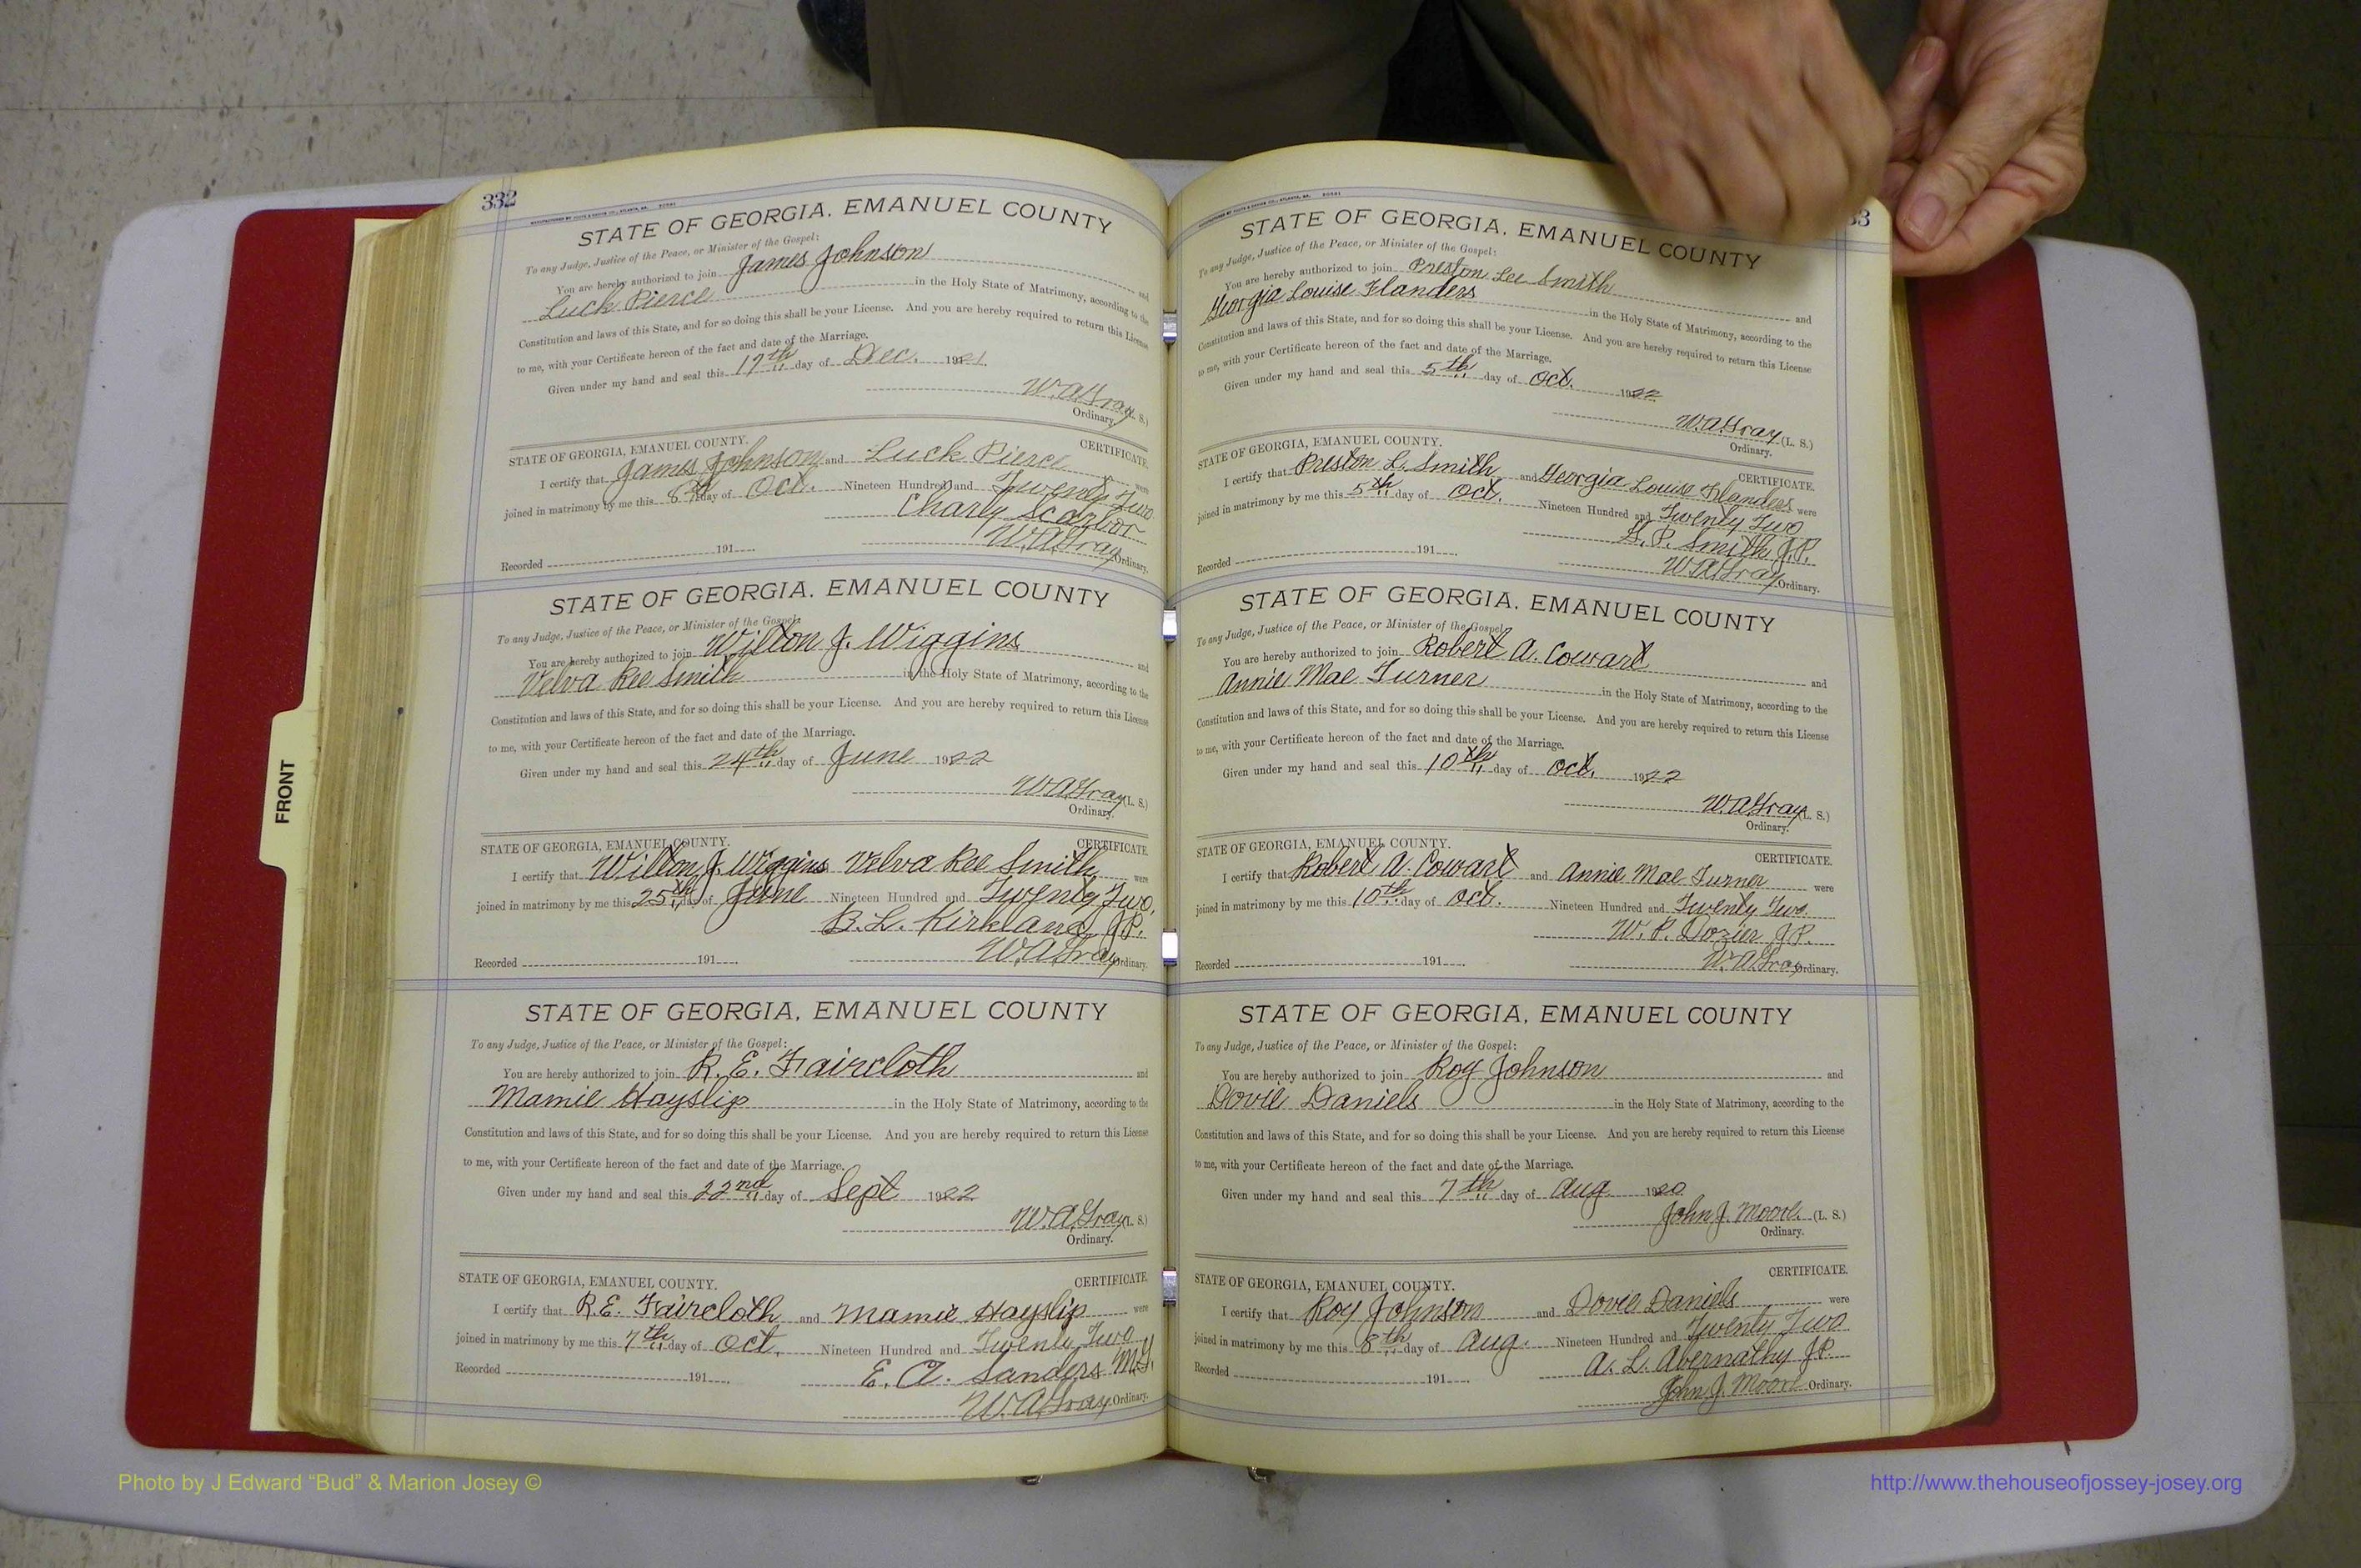 332
STATE OF GEORGIA, EMANUEL COUNTY
To any Judge, Justice of the Peace, or Minister of the Gospel:
You are hereby authorized to join James Johnson and
Luck Pierce in the Holy State of Matrimony, according to the
Constitution and laws of this State, and for so doing this shall be your License. And you are hereby required to return this License
to me, with your Certificate hereon of the fact and date of the Marriage.
Given under my hand and seal this 17th day of Dec. 1921.
W.A.Gray (L. S.)
Ordinary.
STATE OF GEORGIA, EMANUEL COUNTY. CERTIFICATE.
I certify that James Johnson and Luck Pierce were
joined in matrimony by me this 8th day of Oct. Nineteen Hundred and Twenty Two
Charly Scarbor
Recorded 191 W.A.Gray Ordinary.
STATE OF GEORGIA, EMANUEL COUNTY
To any Judge, Justice of the Peace, or Minister of the Gospel:
You are hereby authorized to join Wilton J. Wiggins and
Velva Ree Smith in the Holy State of Matrimony, according to the
Constitution and laws of this State, and for so doing this shall be your License. And you are hereby required to return this License
to me, with your Certificate hereon of the fact and date of the Marriage.
Given under my hand and seal this 24th day of June 1922
W.A.Gray (L. S.)
Ordinary.
STATE OF GEORGIA, EMANUEL COUNTY. CERTIFICATE.
I certify that Wilton J. Wiggins Velva Ree Smith were
joined in matrimony by me this 25th day of June Nineteen Hundred and Twenty Two,
B.L. Kirkland J.P.
Recorded 191 W.A.Gray Ordinary.
STATE OF GEORGIA, EMANUEL COUNTY
To any Judge, Justice of the Peace, or Minister of the Gospel:
You are hereby authorized to join R. E. Faircloth and
Mamie Hayslip in the Holy State of Matrimony, according to the
Constitution and laws of this State, and for so doing this shall be your License. And you are hereby required to return this License
to me, with your Certificate hereon of the fact and date of the Marriage.
Given under my hand and seal this 22nd day of Sept 1922
W.A.Gray (L. S.)
Ordinary.
STATE OF GEORGIA, EMANUEL COUNTY. CERTIFICATE.
I certify that R.E. Faircloth and Mamie Hayslip were
joined in matrimony by me this 7th day of Oct. Nineteen Hundred and Twenty Two
Recorded 191 E. A. Sanders M.G.
W.A.Gray Ordinary.
33
STATE OF GEORGIA, EMANUEL COUNTY
To any Judge, Justice of the Peace, or Minister of the Gospel:
You are hereby authorized to join Preston Lee Smith and
Georgia Louise Flanders in the Holy State of Matrimony, according to the
Constitution and laws of this State, and for so doing this shall be your License. And you are hereby required to return this License
to me, with your Certificate hereon of the fact and date of the Marriage.
Given under my hand and seal this 5th day of Oct. 1922
W.A.Gray (L. S.)
Ordinary.
STATE OF GEORGIA, EMANUEL COUNTY. CERTIFICATE.
I certify that Preston L. Smith and Georgia Louise Flanders were
joined in matrimony by me this 5th day of Oct. Nineteen Hundred and Twenty Two
P. Smith J.P.
Recorded 191 W.A.Gray Ordinary.
STATE OF GEORGIA, EMANUEL COUNTY
To any Judge, Justice of the Peace, or Minister of the Gospel:
You are hereby authorized to join Robert A. Cowart and
Annie Mae Turner in the Holy State of Matrimony, according to the
Constitution and laws of this State, and for so doing this shall be your License. And you are hereby required to return this License
to me, with your Certificate hereon of the fact and date of the Marriage.
Given under my hand and seal this 10th day of Oct. 1922
W.A.Gray (L. S.)
Ordinary.
STATE OF GEORGIA, EMANUEL COUNTY. CERTIFICATE.
I certify that Robert A. Cowart and Annie Mae Turner were
joined in matrimony by me this 10th day of Oct. Nineteen Hundred and Twenty Two.
W. P. Dozier J.P.
Recorded 191 W.A.Gray Ordinary.
STATE OF GEORGIA, EMANUEL COUNTY
To any Judge, Justice of the Peace, or Minister of the Gospel:
You are hereby authorized to join Roy Johnson and
Dovie Daniels in the Holy State of Matrimony, according to the
Constitution and laws of this State, and for so doing this shall be your License. And you are hereby required to return this License
to me, with your Certificate hereon of the fact and date of the Marriage.
Given under my hand and seal this 7th day of Aug 1920
John J. Moore. (L. S.)
Ordinary.
STATE OF GEORGIA, EMANUEL COUNTY. CERTIFICATE.
I certify that Roy Johnson and Dovie Daniels were
joined in matrimony by me this 8th day of Aug. Nineteen Hundred and Twenty Two
Recorded 191 A. L. Abernathy J.P.
John J. Moore Ordinary.
FRONT
Photo by J Edward “Bud” & Marion Josey ©
http://www.thehouseofjossey-josey.org